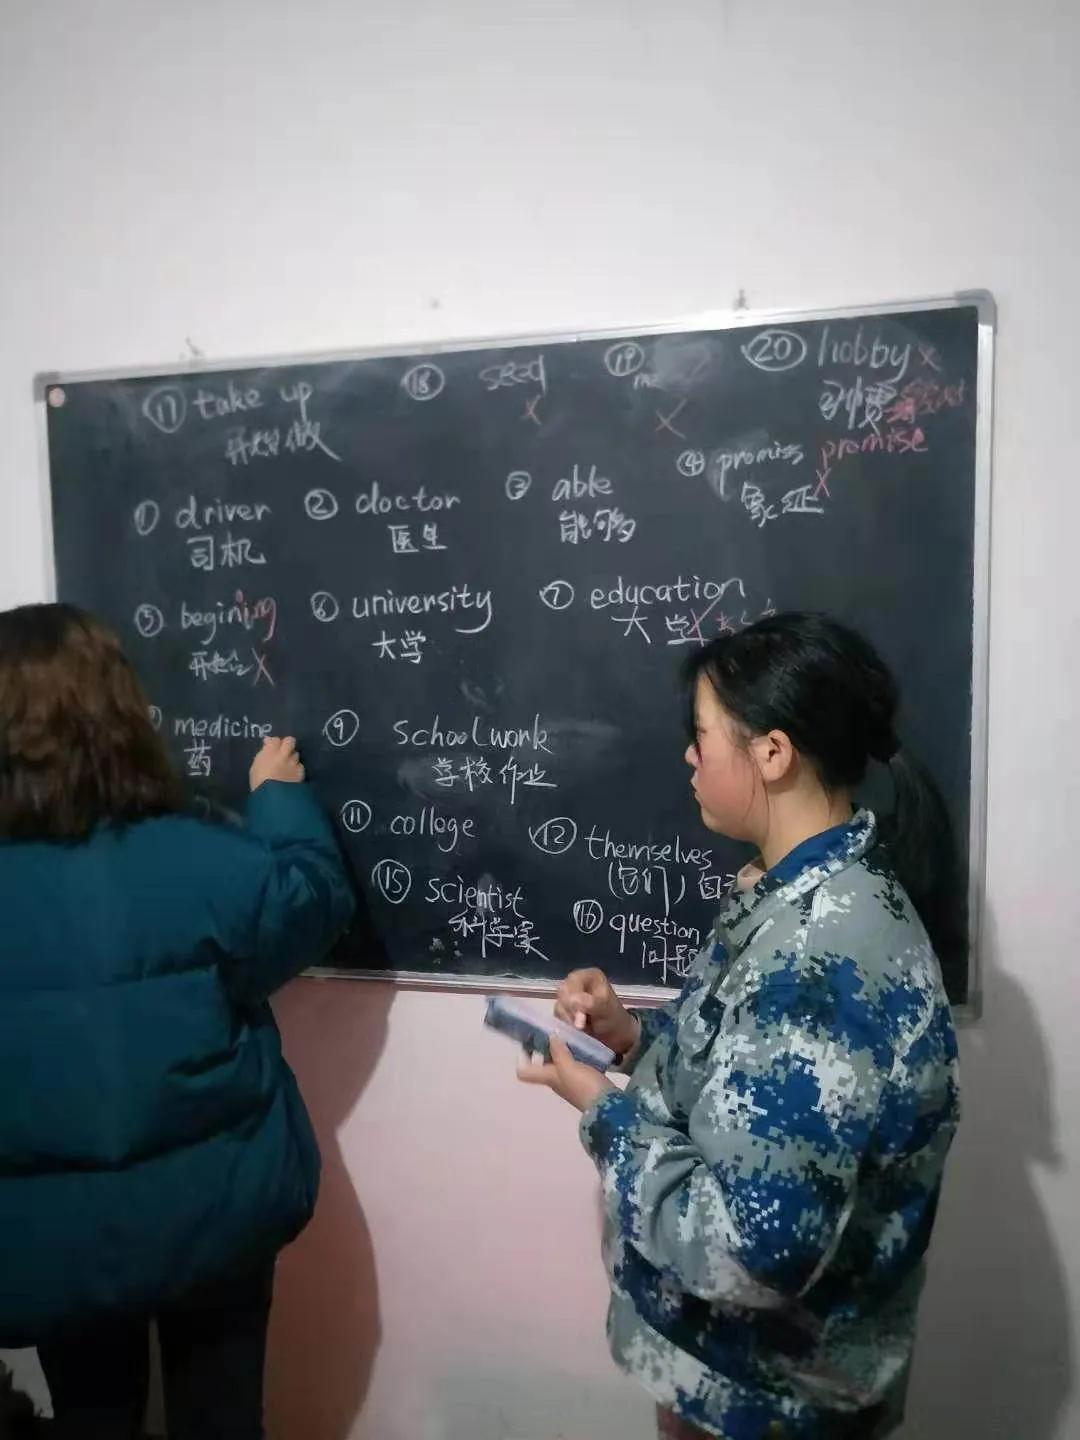 ⑰ take up ⑱ seed ⑲ me ⑳ hobby x
开始做 x x
promise
① driver ② doctor ③ able ④ promiss x
司机 医生 能够 象征
⑤ begining ⑥ university ⑦ education
开始 x 大学 大学 x
medicine ⑨ schoolwork
药 学校作业
⑪ colloge ⑫ themselves
(它们) 自
⑮ scientist ⑯ question
科学家 问题